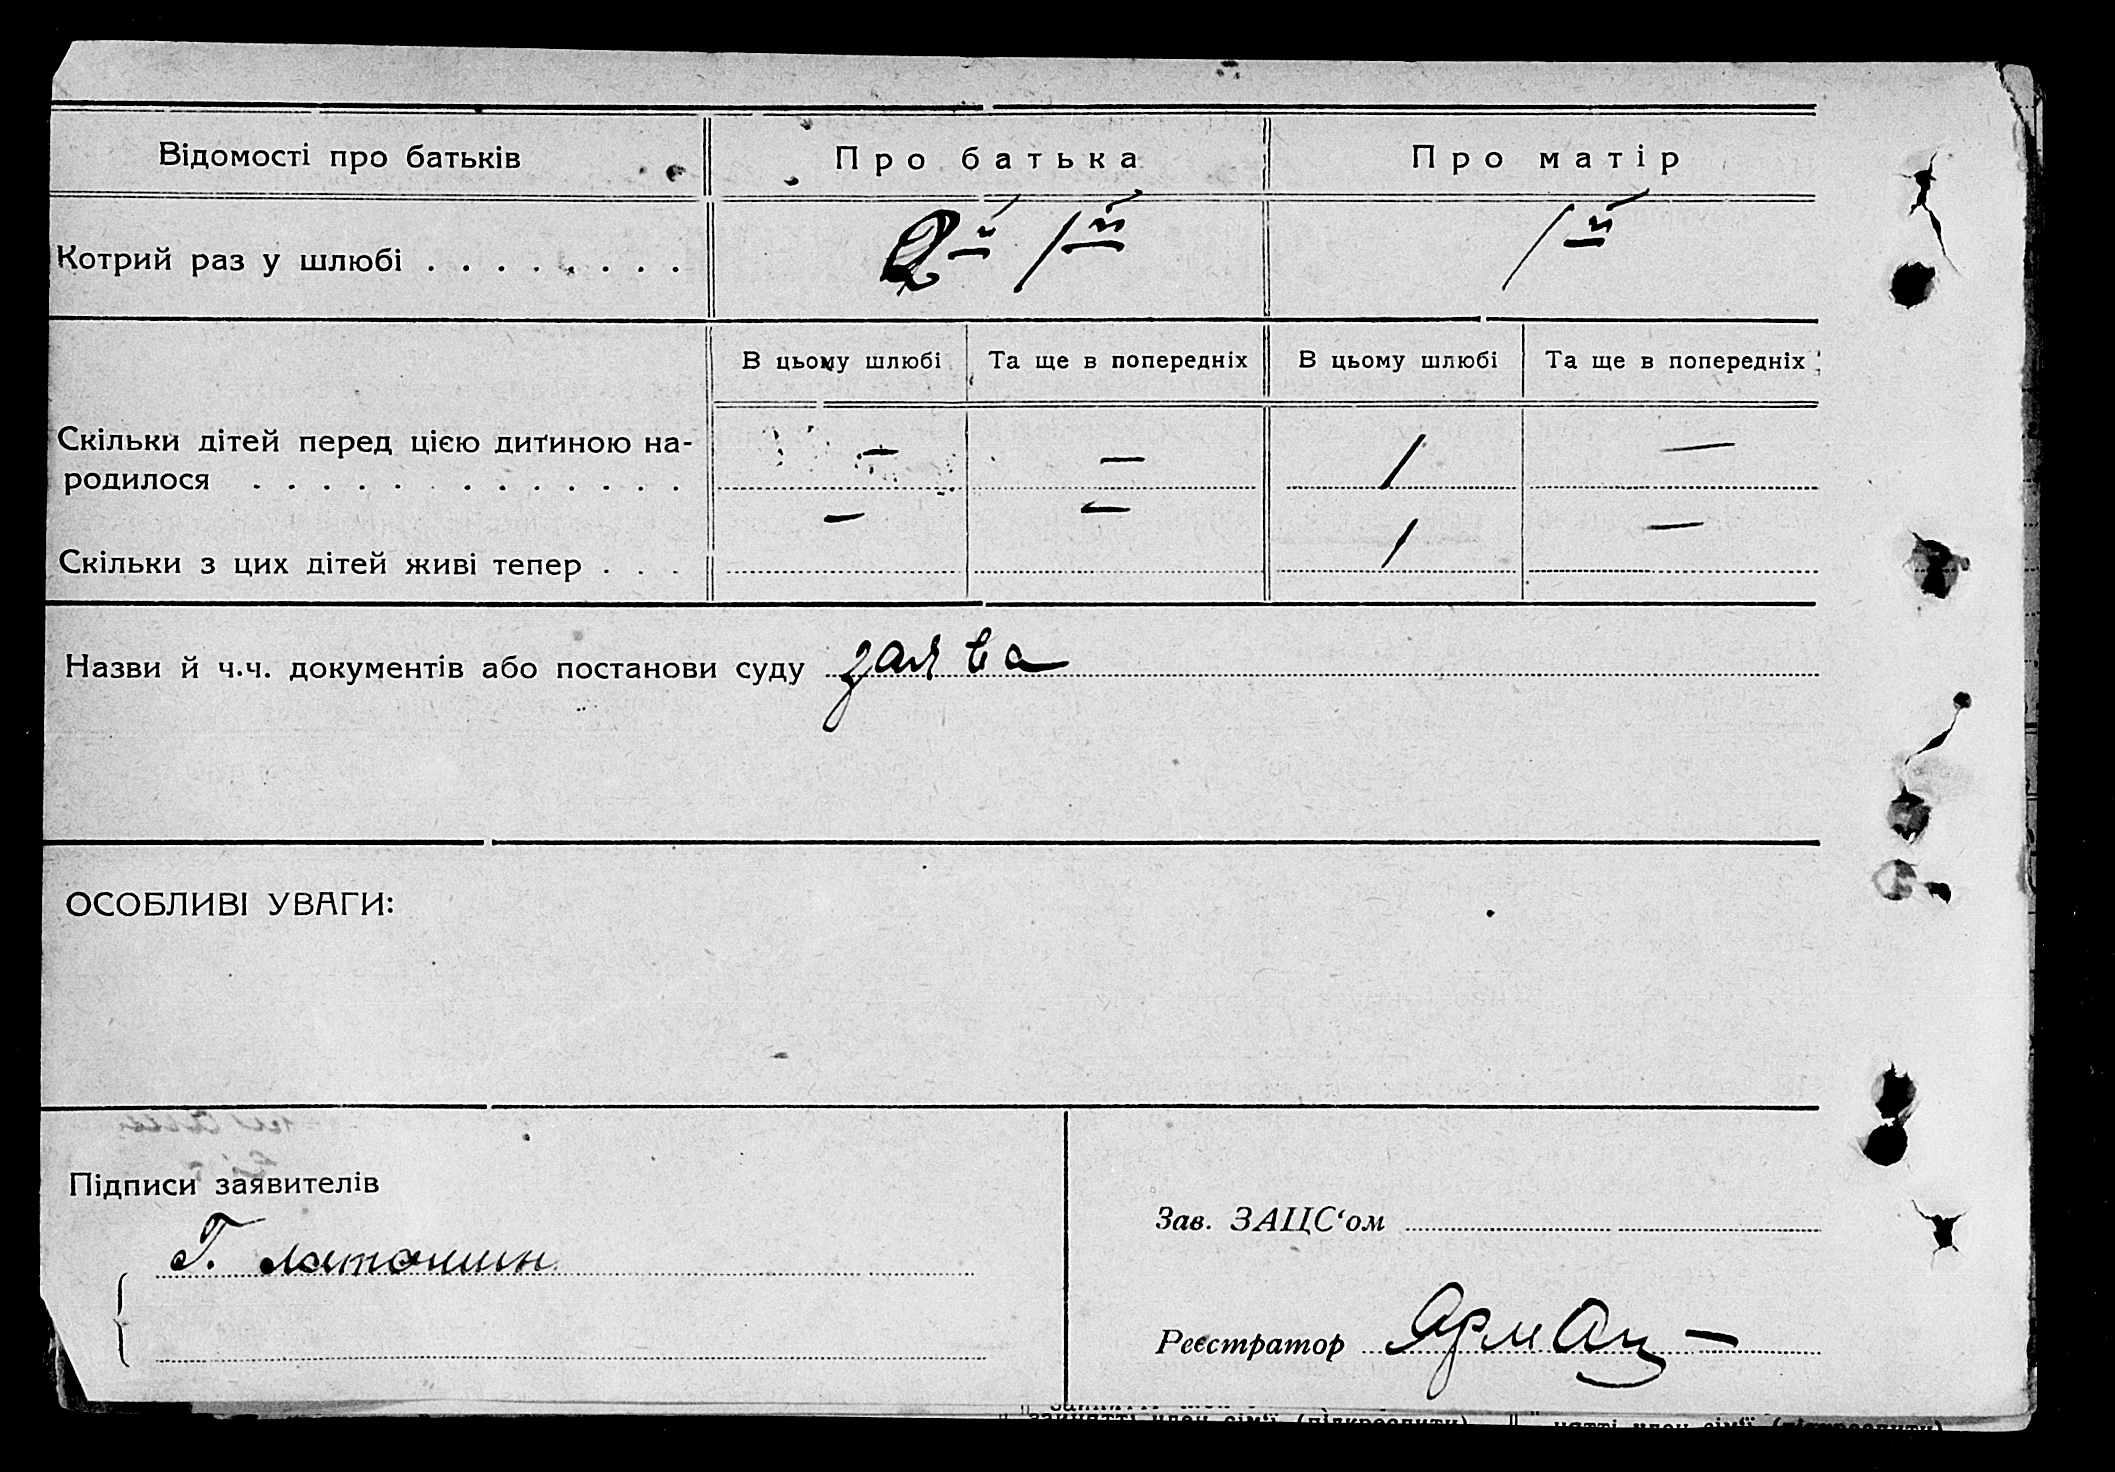 Відомості про батьків Про батька Про матір
Котрий раз у шлюбі . . . . . . . . 2й 1й 1й
В цьому шлюбі Та ще в попередніх В цьому шлюбі Та ще в попередніх
Скільки дітей перед цією дитиною на-
родилося . . . . . . . . . . . . . — — 1 —
Скільки з цих дітей живі тепер . . . — — 1 —
Назви й ч.ч. документів або постанови суду заява
ОСОБЛИВІ УВАГИ:
Підписи заявителів
Зав. ЗАЦС‘ом
Г.
Реєстратор Ярмац—